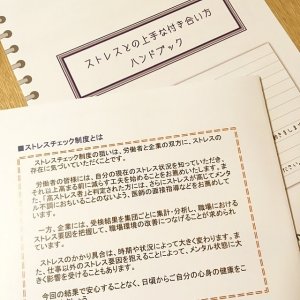 ストレスとの上手な付き合い方
ハンドブック
■ストレスチェック制度とは
ストレスチェック制度の狙いは、労働者と企業の双方に、ストレスの
存在に気づいていただくことです。
労働者の皆様には、自分の現在のストレス状況を知っていただき、
それ以上高まる前に減らす工夫を始めることをお薦めいたします。ま
た、「高ストレス者」と判定された方には、さらにストレスが高じてメンタ
ル不調におちいることのないよう、医師の面接指導などをお薦めして
います。
一方、企業には、受検結果を集団ごとに集計・分析し、職場における
ストレス要因を把握して、職場環境の改善につなげることが求められ
ています。
ストレスのかかり具合は、時期や状況によって大きく変わります。ま
た、仕事以外のストレス要因を抱えることによって、メンタル状態に大
きく影響を受けることもあります。
今回の結果で安心することなく、日頃からご自分の心身の健康をこ